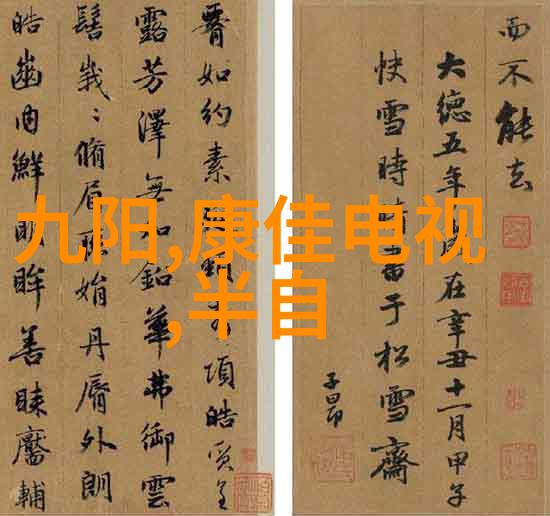 如约素頸項皓质呈
露芳澤無加鉛華弗御雲
髻峩〻脩眉聯娟丹脣外朗
皓齒内鮮明眸善睞靨輔
而不能去
大德五年歲在辛丑十一月甲子
快雪時晴書于松雪齋
子昂
九阳,康佳电视
,半自